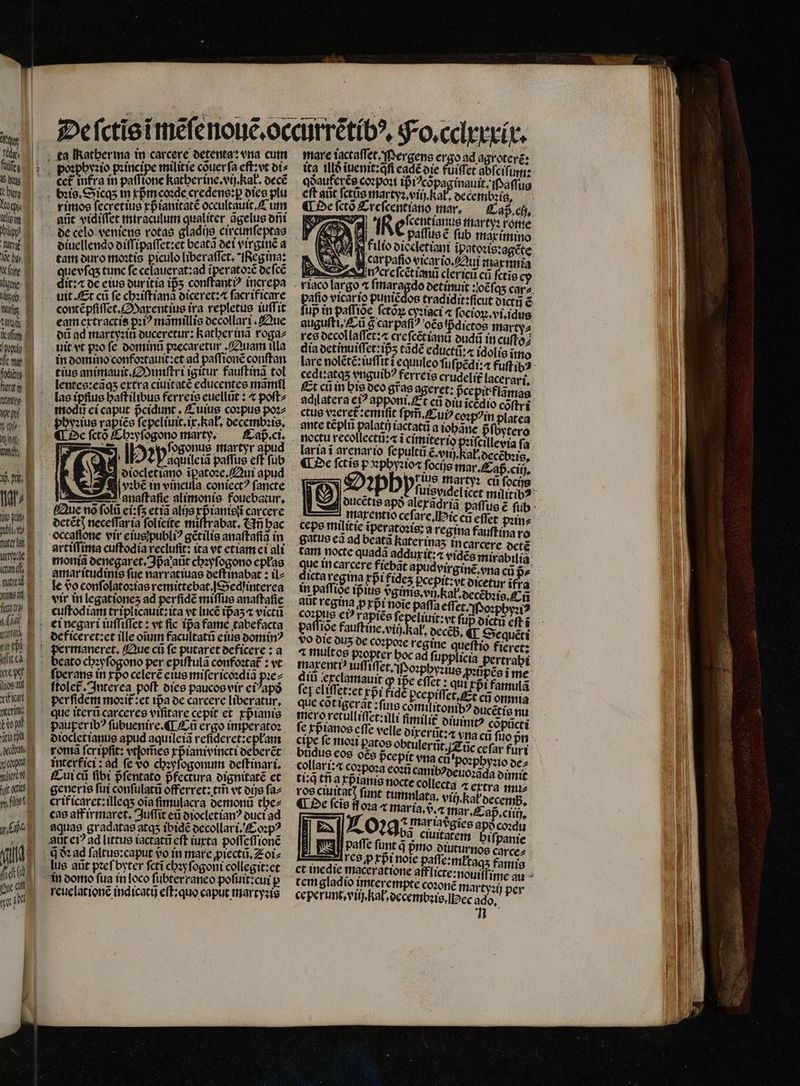 De sctis i mẽse nouẽ.occurrẽtibꝰ. Fo.cclxxxix.
ta Katherina in carcere detenta: vna cum
poꝛphyꝛio pꝛincipe militie cõuersa est: vt di⸗
cet᷒ infra in passione katherine.vij.kal. decẽ
bꝛis. Sicqꝫ in xp̃m coꝛde credens: ꝑ dies plu
rimos secretius xp̃ianitatẽ occultauit. Cum
aũt vidisset miraculum qualiter ãgelus dñi
de celo veniens rotas gladijs circumseptas
diuellendo dissipasset: et beatã dei virginẽ a
tam duro moꝛtis piculo liberasset. Regina:
quevsqꝫ tunc se celauerat: ad iperatoꝛẽ descẽ
dit: ⁊ de eius duritia ip̃ꝫ constantiꝰ increpa
uit. Et cũ se chꝛistianã diceret: ⁊ sacrificare
contẽpsisset. Maxentius ira repletus iussit
eam extractis pꝛiꝰ mamillis decollari. Que
dũ ad martyꝛiũ duceretur: katherinã roga⸗
uit vt pꝛo se dominũ pꝛecaretur. Quam illa
in domino confoꝛtauit: et ad passionẽ constan
tius animauit. Ministri igitur faustinã tol
lentes: eãqꝫ extra ciuitatẽ educentes mamil
las ipsius hastilibus ferreis euellũt: ⁊ post⸗
modũ ei caput p̃cidunt. Cuius coꝛpus poꝛ⸗
phyꝛius rapiẽs sepeliuit.ix.kal. decembꝛis.
¶ De scto Chꝛysogono marty. Cap.ci.
Chꝛysogonus martyr apud
aquileiã passus est sub
diocletiano ip̃atoꝛe. Qui apud
vꝛbẽ in vincula coniectꝰ sancte
anastasie alimonis fouebatur.
Que nõ solũ ei: sꝫ etiã alijs xp̃ianis i carcere
detẽt᷒ necessaria solicite mistrabat. Uñ hac
occasione vir eius publiꝰ gẽtilis anastasiã in
artissima custodia reclusit: ita vt etiam ei ali
moniã denegaret. Ip̃a aũt chꝛysogono ep̃las
amaritudinis sue narratiuas destinabat: il⸗
le ꝟo consolatoꝛias remittebat. Sed interea
vir in legationeꝫ ad persidẽ missus anastasie
custodiam triplicauit: ita vt lucẽ ip̃aꝫ ⁊ victũ
ei negari iussisset: vt sic ip̃a fame tabefacta
deficeret: et ille oĩum facultatũ eius dominꝰ
permaneret. Que cũ se putaret deficere: a
beato chꝛysogono per epistulã confoꝛtat᷒: vt
sperans in xp̃o celerẽ eius misericoꝛdiã pꝛe⸗
stolet᷒. Interea post dies paucos vir eiꝰ apõ
persidem moꝛit᷒: et ip̃a de carcere liberatur.
que iterũ carceres visitare cepit et xp̃ianis
pauperibꝰ subuenire. ¶ Cũ ergo imperatoꝛ
diocletianus apud aquileiã resideret: ep̃lam
romã scripsit: vt om̃es xp̃iani vincti deberẽt
interfici: ad se ꝟo chꝛysogonum destinari.
Cui cũ sibi p̃sentato p̃fectura dignitatẽ et
generis sui consulatũ offerret: tm̃ vt dijs sa⸗
crificaret: illeqꝫ oĩa simulacra demonũ the⸗
cas affirmaret. Iussit eũ diocletianꝰ duci ad
aquas gradatas atqꝫ ibidẽ decollari. Coꝛpꝰ
aũt eiꝰ ad littus iactatũ est iuxta possessionẽ
q̃ dꝛ ad saltus: caput ꝟo in mare ꝓiectũ. Zoi⸗
lus aũt pꝛesbyter scti chꝛysogoni collegit: et
in domo sua in loco subterraneo posuit: cui ꝑ
reuelationẽ indicatũ est: quo caput martyꝛis
mare iactasset. Pergens ergo ad ag roterẽ:
ita illd̓ iuenit: q̃si eadẽ die fuisset abscisum:
qd̓ auferẽs coꝛpoꝛi ip̃iꝰ cõpaginauit. Passus
est aũt sctũs martyꝛ.viij.kal. decembꝛis.
¶ De sctõ Crescentiano mar. Cap.cij.
Crescentianus martyꝛ rome
passus ẽ sub maximino
filio diocletiani ip̃atoꝛis: agẽte
carpasio vicario. Qui maxmia
n crescẽtianũ clericũ cũ sctis cy
riaco largo ⁊ smaragdo detinuit: oẽsqꝫ car⸗
pasio vicario puniẽdos tradidit: sicut dictũ ẽ
sup̃ in passiõe sctoꝝ cyꝛiaci ⁊ socioꝝ.vi.idus
augusti. Cũ g̃ carpasiꝰ oẽs p̃dictos marty⸗
res decollasset: ⁊ crescẽtianũ dudũ in custo⸗
dia detinuisset: ip̃ꝫ tãdẽ eductũ: ⁊ idolis imo
lare nolẽtẽ: iussit i equuleo suspẽdi: ⁊ fustibꝰ
cedi: atqꝫ vnguibꝰ ferreis crudelit᷒ lacerari.
Et cũ in his deo gr̃as ageret: p̃cepit flãmas
ad latera eiꝰ apponi. Et cũ diu icẽdio cõstri
ctus vꝛeret᷒: emisit spm̃. Cuiꝰ coꝛpꝰ in platea
ante tẽplũ palatij iactatũ a iohãne p̃sbytero
noctu recollectũ: ⁊ i cimiterio pꝛiscille via sa
laria i arenario sepultũ ẽ.viij.kal.decẽbꝛis.
¶ De sctis poꝛphyꝛio ⁊ socijs mar. Cap.ciij.
Poꝛphyꝛius martyꝛ cũ socijs
suis videlicet militibꝰ
ducẽtis apõ alexãdriã passus ẽ sub
maxentio cesare. Hic cũ esset pꝛin⸗
ceps militie iperatoꝛis: a regina faustina ro
gatus eã ad beatã katerinaꝫ in carcere detẽ
tam nocte quadã adduxit: ⁊ vidẽs mirabilia
que in carcere fiebãt apud virginẽ. vna cũ p̃⸗
dicta regina xp̃i fideꝫ ꝑcepit: vt dicetur ifra
in passiõe ip̃ius ꝟginis.vij.kal.decẽbꝛis. Cũ
aũt regina ꝓ xp̃i noĩe passa esset. Poꝛphyꝛiꝰ
coꝛpus eiꝰ rapiẽs sepeliuit: vt sup̃ dictũ est i
passiõe faustine.viij.kal. decẽb. ¶ Sequẽti
ꝟo die duꝫ de coꝛpoꝛe regine questio fieret:
⁊ multos pꝛopter hoc ad supplicia pertrahi
maxentiꝰ iussisset. Poꝛphyꝛius pꝛũpẽs i me
diũ exclamauit ꝙ ip̃e esset: qui xp̃i famulã
sepelisset: et xp̃i fidẽ ꝑcepisset. Et cũ omnia
que cõtigerãt: suis comilitonibꝰ ducẽtis nu
mero retulisset: illi similit᷒ diuinitꝰ cõpũcti
se xp̃ianos esse velle dixerũt: ⁊ vna cũ suo pꝛin
cipe se moꝛi patos obtulerũt. Tũc cesar furi
bũdus eos oẽs p̃cepit vna cũ poꝛphyꝛio de⸗
collari: ⁊ coꝛpoꝛa eoꝝ canibꝰ deuoꝛãda dimit
ti: q̃ tñ a xp̃ianis nocte collecta ⁊ extra mu⸗
ros ciuitat᷒ sunt tumulata. viij.kal decemb.
¶ De scis floꝛa ⁊ maria.ꝟ.⁊ mar. Cap.ciiij.
Floꝛa ⁊ maria ꝟgies apõ coꝛdu
bã ciuitatem hispanie
passe sunt q̃ p̃mo diuturnos carce⸗
res ꝓ xp̃i noĩe passe: ml̃taqꝫ famis
et inedie maceratione afflicte: nouissime au⸗
tem gladio interempte coꝛonẽ martyꝛij per
ceperunt. viij.kal.decembꝛis. Hec ado.
n